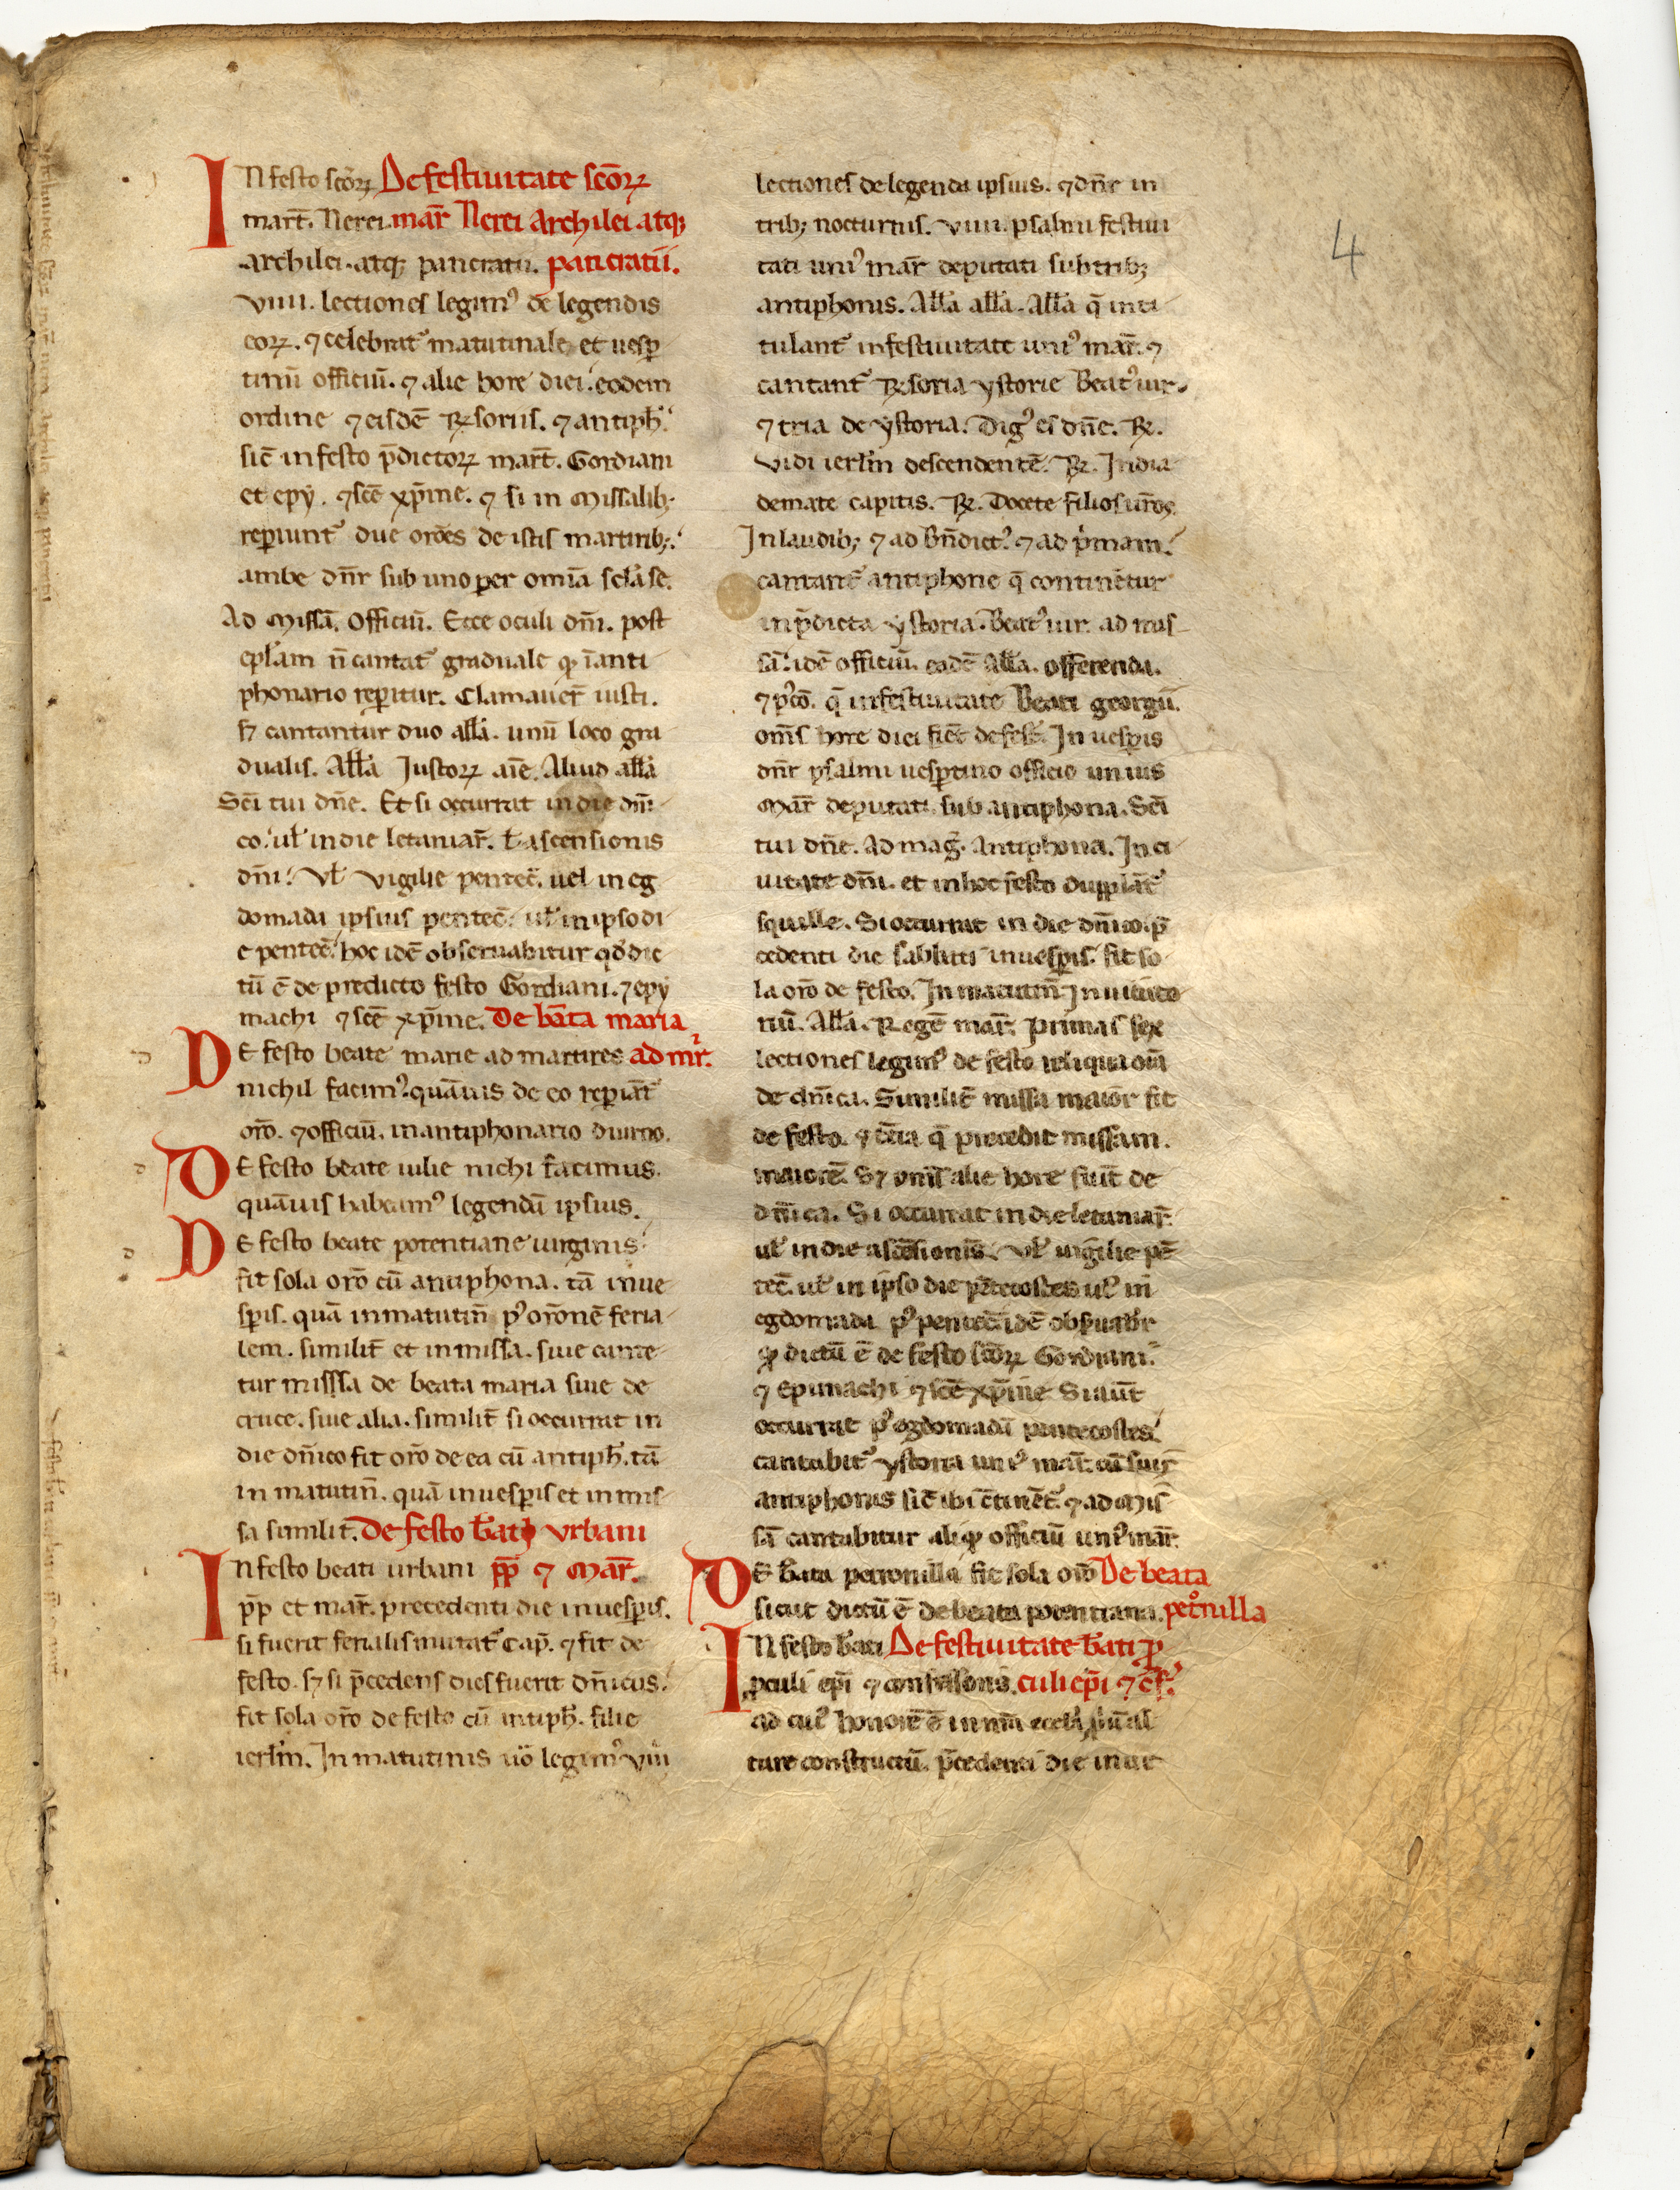 4
IN festo scōꝝ De festiuitate scōꝝ
mart̄. Nerei. mar̄ Nerei Archilei atq;
archilei. atq; pancratii. pancratii.
viiii. lectiones legimꝰ de legendis
eoꝝ. ⁊ celebrat᷑ matutinale et uesp
tinū officiū. ⁊ alie hore diei. eodem
ordine ⁊ eisdē ℞soriis. ⁊ antiph̄.
sic̄ in festo p̄dictoꝝ mart̄. Gordiani
et epy. ⁊ scē xp̄ine. ⁊ si in missalib;
reperiunt᷑ due orōes de istis martirib;.
ambe dn̄r sub uno per omīa sclā se.
Ad Missā. Officiū. Ecce oculi dn̄i. post
ep̄lam n̄ cantat᷑ graduale ꝙ ī anti
phonario reperitur. Clamauer̄ iusti.
sꝫ cantantur duo all̄a. unū loco gra
dualis. All̄a Iustoꝝ aīe. Aliud all̄a
Sc̄i tui dn̄e. Et si occurrat in die dn̄i
co. ul̄ in die letaniar̄. ł ascensionis
dn̄i. Vl̄ vigilie pentec̄. uel in eg
domada ipsius pentec̄. ul̄ in ipso di
e pentec̄. hoc idē obseruabitur qd̄ dic
tū ē de predicto festo Gordiani. ⁊ epy
machi ⁊ scē xp̄ine. De bāta maria
DE festo beate marie ad martires ad mr̄.
nichil facimꝰ. quāuis de eo reperiāt᷑
orō. ⁊ officiū. in antiphonario diurno.
DE festo beate iulie nichi facimus.
quāuis habeamꝰ legendā ipsius.
DE festo beate potentiane uirginis.
fit sola orō cū antiphona. tā in ue
speris. quā in matutin̄ pꝰ orōnē feria
lem. similit̄ et in missa. siue cante
tur misssa de beata maria siue de
cruce. siue alia. similit̄ si occurrat in
die dn̄ico fit orō de ea cū antiph̄. tā
in matutin̄. quā in uesperis et in mis
sa similit̄. De festo b̄ati vrbani
IN festo beati urbani pp̄ ⁊ Mar̄.
pp̄ et mar̄. precedenti die in uesperis.
si fuerit ferialis mutat᷑ Cap̄. ⁊ fit de
festo. sꝫ si p̄cedens dies fuerit dn̄icus.
fit sola orō de festo cū antiph̄. filie
ierl̄m. In matutinis uō legimꝰ viiii
lectiones de legenda ipsius. ⁊ dn̄r in
trib; nocturnis. viiii. psalmi festiui
tati uniꝰ mar̄ deputati sub trib;
antiphonis. All̄a all̄a. All̄a q̄ inti
tulant᷑ in festiuitate uniꝰ mar̄. ⁊
cantant᷑ ℞soria ystorie Beatꝰ uir.
⁊ tria de ystoria. Digꝰ es dn̄e. ℞.
Vidi ierl̄m descendentē. ℞. In dia
demate capitis. ℞. Docete filios ur̄os.
In laudib; ⁊ ad bn̄dict᷑. ⁊ ad p̄mam.
cantant᷑ antiphone q̄ continētur
in p̄dicta ystoria. Beatꝰ uir. ad mis
sā. idē officiū. eadē all̄a. offerenda.
⁊ pꝰcō. q̄ in festiuitate Beati georgii.
om̄s hore diei fiēt de fest̄. In uesperis
dn̄r psalmi uespertino officio unius
Mar̄ deputati. sub antiphona. Sc̄i
tui dn̄e. Ad maḡ. Antiphona. In ci
uitate dn̄i. et in hoc festo dupplāt᷑
squille. Si occurrat in die dn̄ico. p̄
cedenti die sabbati in uesperis. fit so
la orō de festo. In matutin̄ Inuitato
riū. All̄a. Regē mar̄. Primas sex
lectiones legimꝰ de festo reliqua om̄a
de dn̄ica. Similit̄ missa maior fit
de festo. ⁊ t̄cia q̄ precedit missam
maiorē. Sꝫ om̄s alie hore fiūt de
dn̄ica. Si occurrat in die letaniar̄.
ul̄ in die ascēsionis. Vl̄ uigilie pē
tec̄. ul̄ in ipso die pētecostes ul̄ in
egdomada pꝰ pentec̄ idē obseruab̄r
ꝙ dictū ē de festo scōꝝ Gordiani.
⁊ Epimachi ⁊ scē xp̄ine Si aūt
occurrat pꝰ egdomadā pentecostes.
cantabit᷑ ystoria uniꝰ mar̄. cū suis
antiphonis sic̄ ibi ɔtinēt᷑. ⁊ ad Mis
sā cantabitur aliqd̄ officiū uniꝰ mar̄.
DE bāta petronilla fit sola orō De beata
sicut dictū ē de beata potentiana. pet̊nilla
IN festo b̄ati De festiuitate b̄ati p̄
proculi epī ⁊ confessoris. culi epī ⁊ ɔf̄.
ad cuiꝰ honorē ē in nr̄a eccl̄a
ture constructū. p̄cedenti die in ue